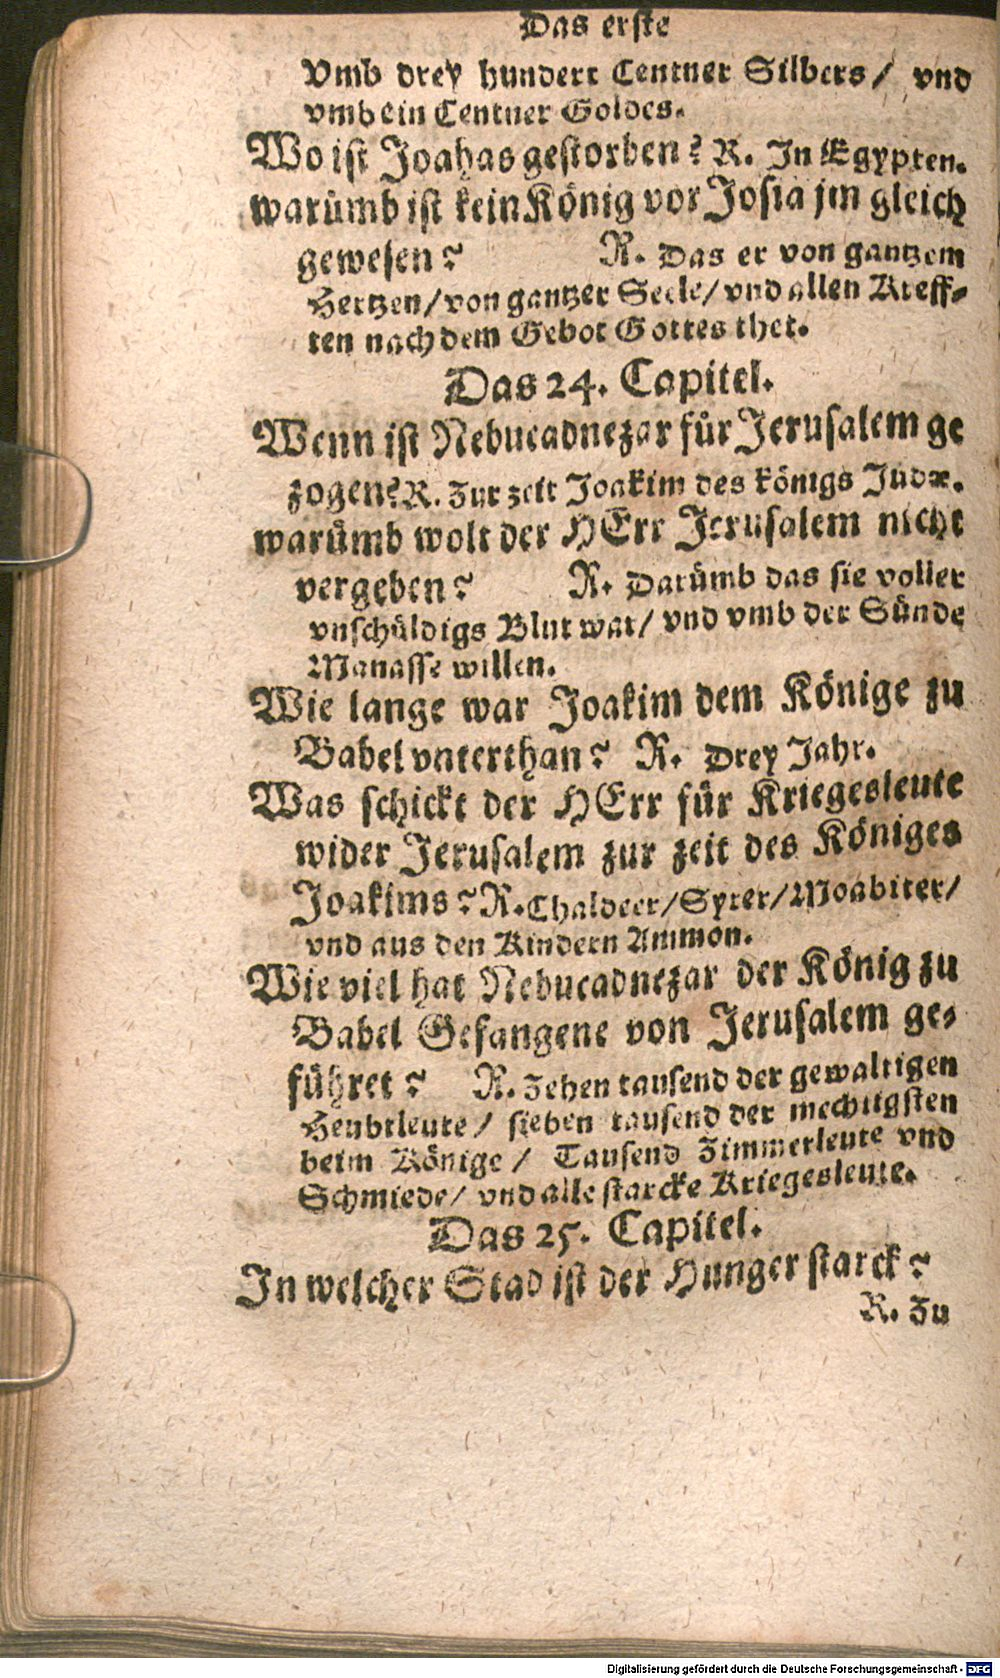 Das erste
Vmb drey hundert Centner Silbers / vnd
vmb ein Centner Goldes.
Wo ist Joahas gestorben? R. In Egypten.
warümb ist kein König vor Josia jm gleich
gewesen? R. Das er von gantzem
Hertzen / von gantzer Seele / vnd allen Kreff-
ten nach dem Gebot Gottes thet.
Das 24. Capitel.
Wenn ist Nebucadnezar für Jerusalem ge
zogen? R. Zur zeit Joakim des königs Judæ.
warümb wolt der HErr Jerusalem nicht
vergeben? R. Darümb das sie voller
vnschüldigs Blut war / vnd vmb der Sünde
Manasse willen.
Wie lange war Joakim dem Könige zu
Babel vnterthan? R. Drey Jahr.
Was schickt der HErr für Kriegesleute
wider Jerusalem zur zeit des Königes
Joakims? R. Chaldeer / Syrer / Moabiter /
vnd aus den Kindern Ammon.
Wie viel hat Nebucadnezar der König zu
Babel Gefangene von Jerusalem ge-
führet? R. Zehen tausend der gewaltigen
Heubtleute / sieben tausend der mechtigsten
beim Könige / Tausend Zimmerleute vnd
Schmiede / vnd alle starcke Kriegesleute.
Das 25. Capitel.
In welcher Stad ist der Hunger starck?
R. Zu
Digitalisierung gefördert durch die Deutsche Forschungsgemeinschaft - DFG